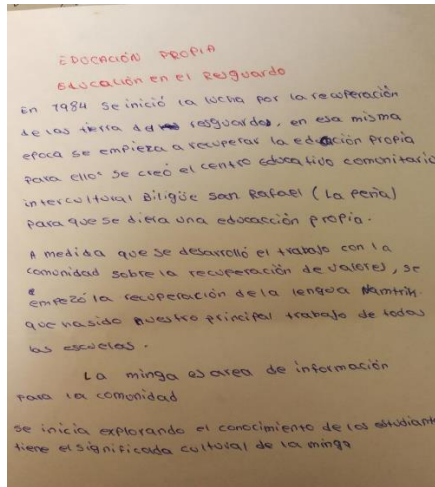 EDUCACIÓN PROPIA
EDUCACIÓN en el Resguardo
En 1984 se inició la lucha por la recuperación
de las tierra del resguardo, en esa misma
epoca se empieza a recuperar la edcación propia
para ello se creó el centro educativo comunitario
intercultural Biligüe San Rafael (La peña)
para que se diera una educacción propia.
A medida que se desarrolló el trabajo con la
comunidad sobre la recuperación de valores, se
empezó la recuperación de la lengua Namtrik.
que ha sido nuestro principal trabajo de todas
las escuelas.
La minga es area de información
para la comonidad
se inicia explorando el conocimiento de los estudiant
tiene el significada cultural de la minga